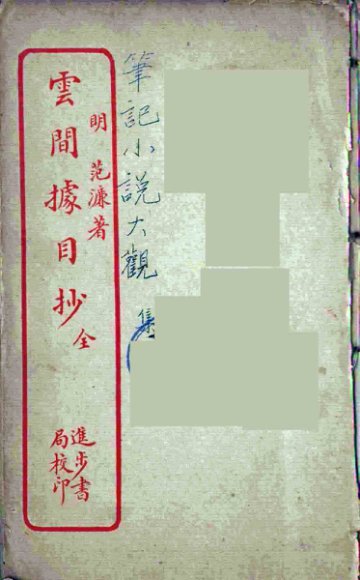 筆記小説大觀
集
明 范濂著
雲間據目抄 全
進步書
局校印